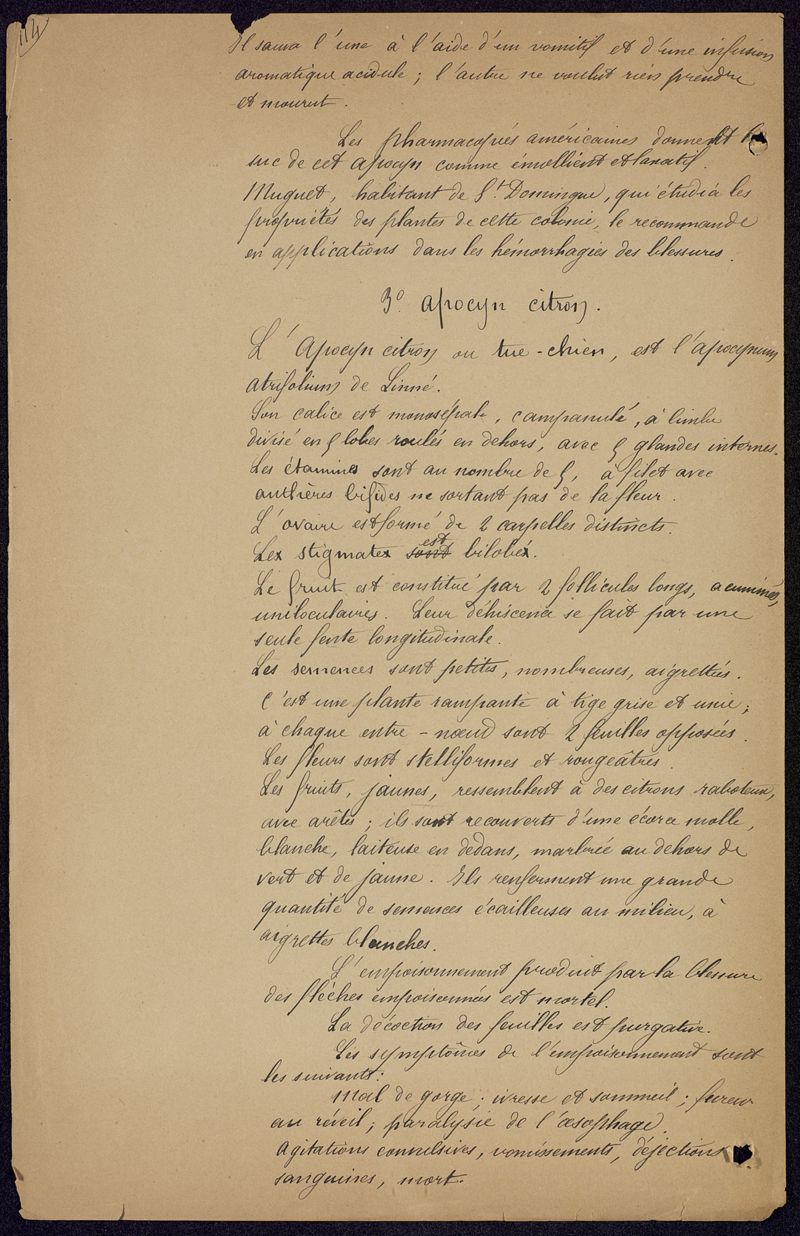 114
Il sauva l'une à l'aide d'un vomitif et d'une infusion
aromatique acidule ; l'autre ne voulut rien prendre
et mourut.
Les pharmacopés américaines donnent le
suc de cet apocyn comme émollient et laxatif.
Muguet, habitant de St. Domingue, qui étudia les
propriétés des plantes de cette colonie, le recommande
en applications dans les hémorrhagies des blessures.
3º. Apocyn citron.
L'Apocyn citron ou tue-chien, est l'apocynum
atrifolium de Linné.
Son calice est monosépale, campanulé, à limbe
divisé en 5 lobes roulés en dehors, avec 5 glandes internes.
Les étamines sont au nombre de 5, à filet avec
anthères bifides ne sortant pas de la fleur.
L'ovaire est formé de 2 carpelles distincts.
Les stigmates sont est bilobés.
Le fruit est constitué par 2 follicules longs, acuminés,
uniloculaires. Leur déhiscence se fait par une
seule fente longitudinale.
Les semences sont petites, nombreuses, aigrettées.
C'est une plante rampante à tige grise et unie ;
à chaque entre-nœud sont 2 feuilles opposées.
Les fleurs sont stelliformes et rougeâtres.
Les fruits, jaunes, ressemblent à des citrons raboteux,
avec arêtes ; ils sont recouverts d'une écorce molle,
blanche, laiteuse en dedans, marbrée au dehors de
vert et de jaune. Ils renferment une grande
quantité de semences écailleuses au milieu, à
aigrettes blanches.
L'empoisonnement produit par la blessure
des flèches empoisonnées est mortel.
La décoction des feuilles est purgative.
Les symptômes de l'empoisonnement sont
les suivants :
Mal de gorge ; ivresse et sommeil ; fureur
au réveil ; paralysie de l'œsophage.
Agitations convulsives, vomissements, déjections
sanguines, mort.